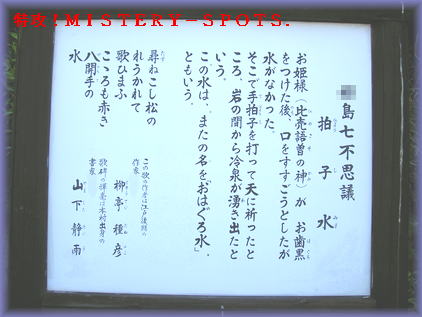 特攻!MISTERY-SPOTS.
島七不思議
拍子水
お姫様(比売語曽の神)が お歯黒
をつけた後、口をすすごうとしたが
水がなかった。
そこで手拍子を打って天に祈ったと
ころ、岩の間から冷泉が湧き出たと
いう。
この水は、またの名を「おはぐろ水」
ともいう。
尋ねこし松の
れうかれて
歌ひまふ
こゝろも赤き
八開手の
水
この歌の作者は江戸後期の
作家
柳亭種彦
歌碑の揮毫は本村出身の
書家
山下静雨